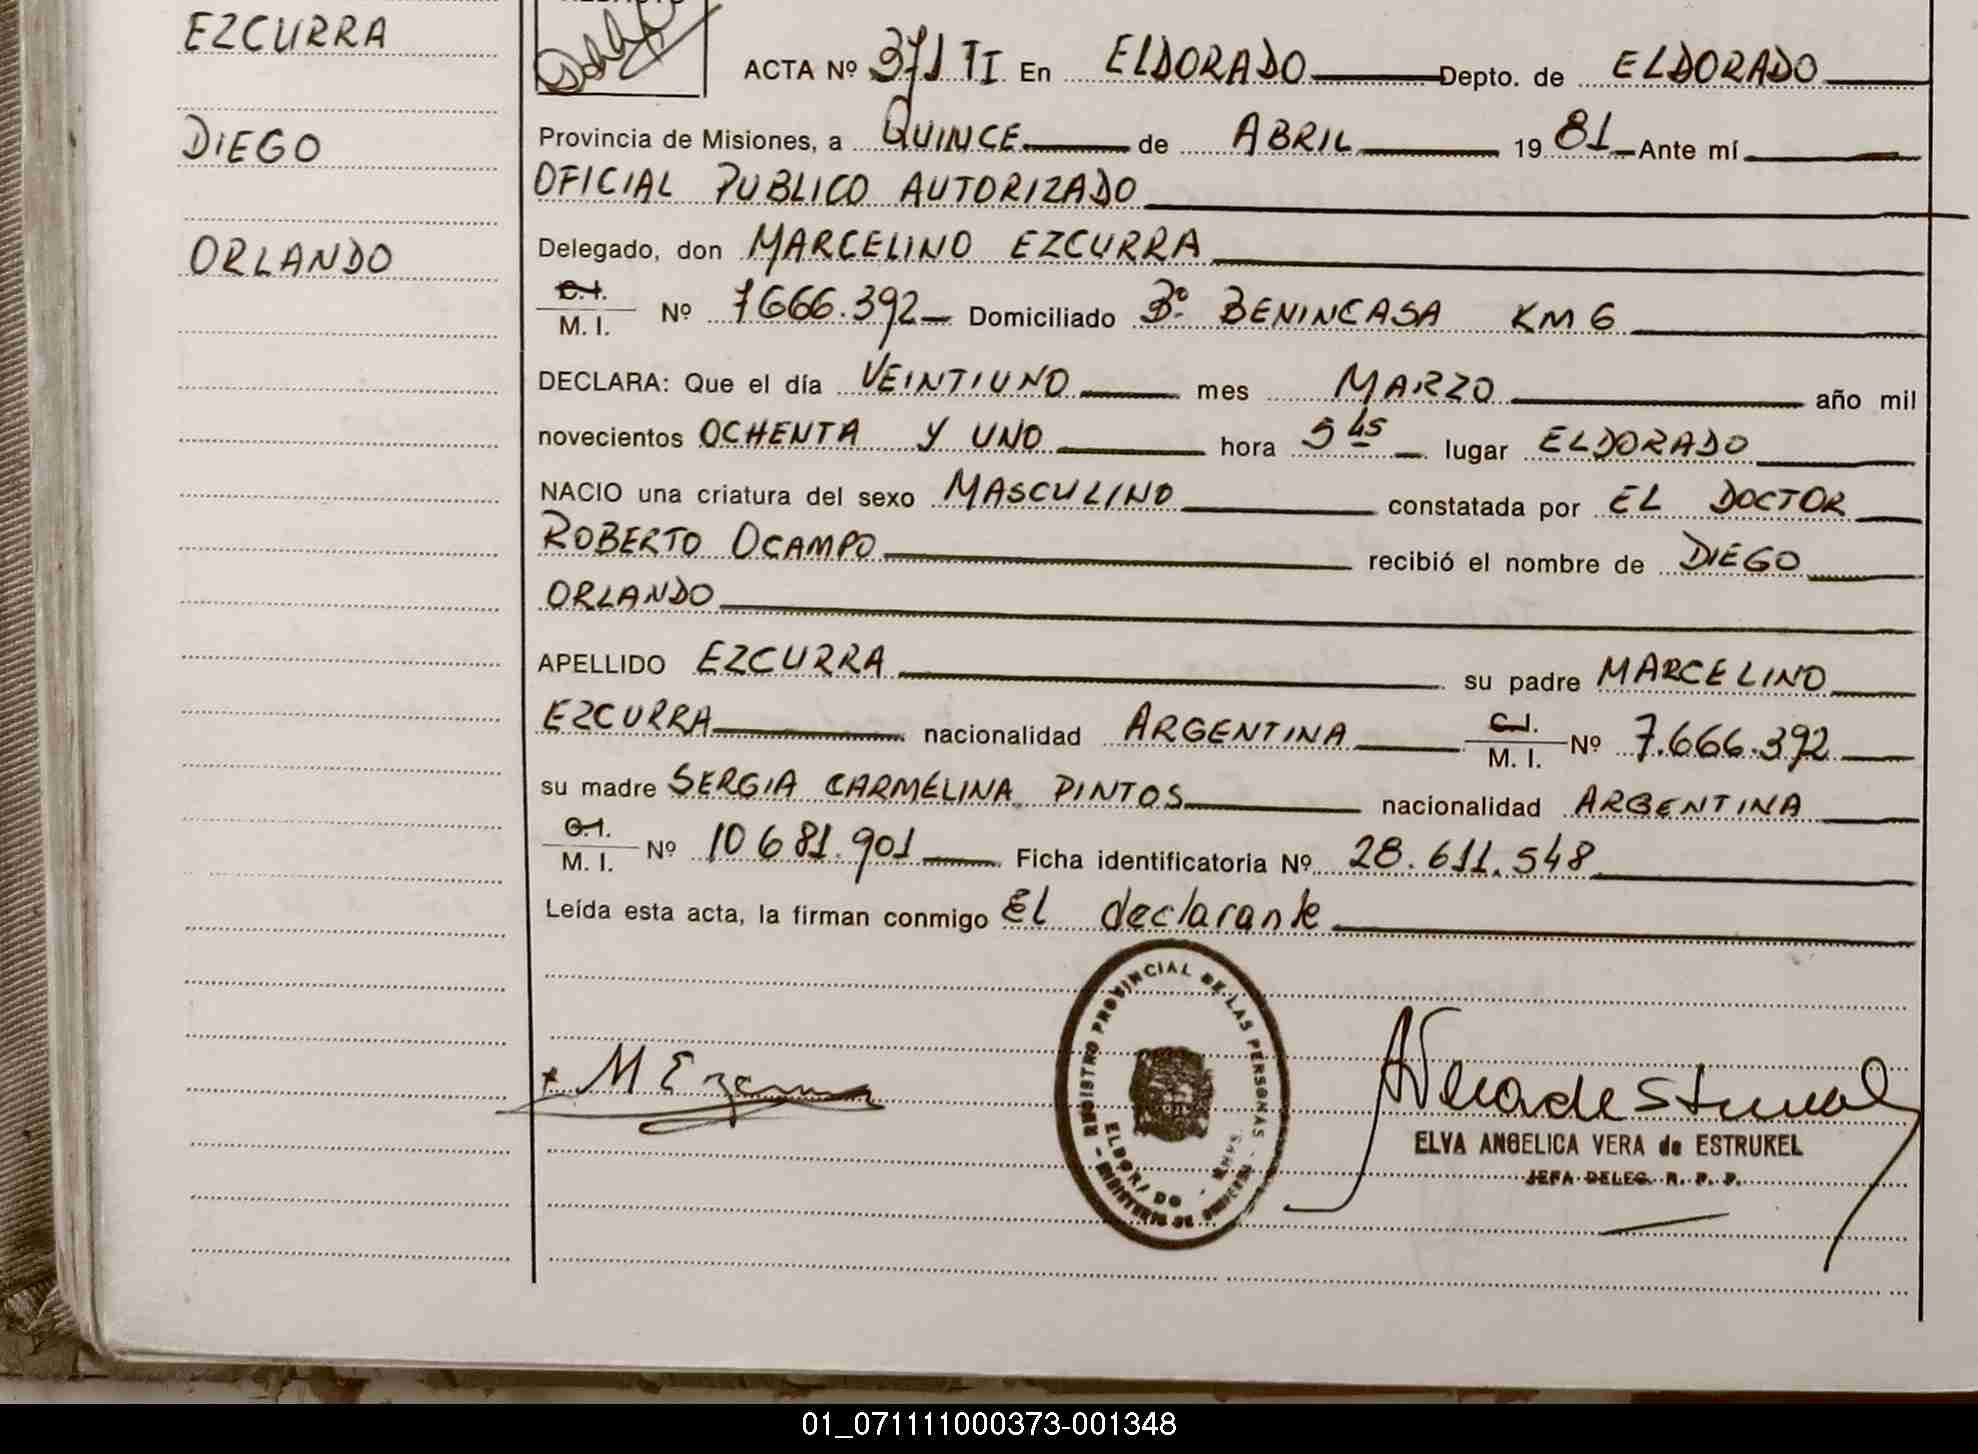 EZCURRA
DIEGO
ORLANDO
ACTA Nº 371 TI En ELDORADO Depto. de ELDORADO
Provincia de Misiones, a QUINCE de ABRIL 1981 Ante mí
OFICIAL PUBLICO AUTORIZADO
Delegado, don MARCELINO EZCURRA
C.I.
M. I. Nº 7666.392 Domiciliado Bº BENINCASA KM 6
DECLARA: Que el día VEINTIUNO mes MARZO año mil
novecientos OCHENTA Y UNO hora 5 45 lugar ELDORADO
NACIO una criatura del sexo MASCULINO constatada por EL DOCTOR
ROBERTO OCAMPO recibió el nombre de DIEGO
ORLANDO
APELLIDO EZCURRA su padre MARCELINO
EZCURRA nacionalidad ARGENTINA C.I. M. I. Nº 7.666.392
su madre SERGIA CARMELINA PINTOS nacionalidad ARGENTINA
C.I.
M. I. Nº 10 681.901 Ficha identificatoria Nº 28.611.548
Leída esta acta, la firman conmigo El declarante
REGISTRO PROVINCIAL DE LAS PERSONAS
ELDORADO
MINISTERIO DE
M Ezcurra
A Vera de Estrukel
ELVA ANGELICA VERA de ESTRUKEL
JEFA DELEG. R. P. P.
01_071111000373-001348